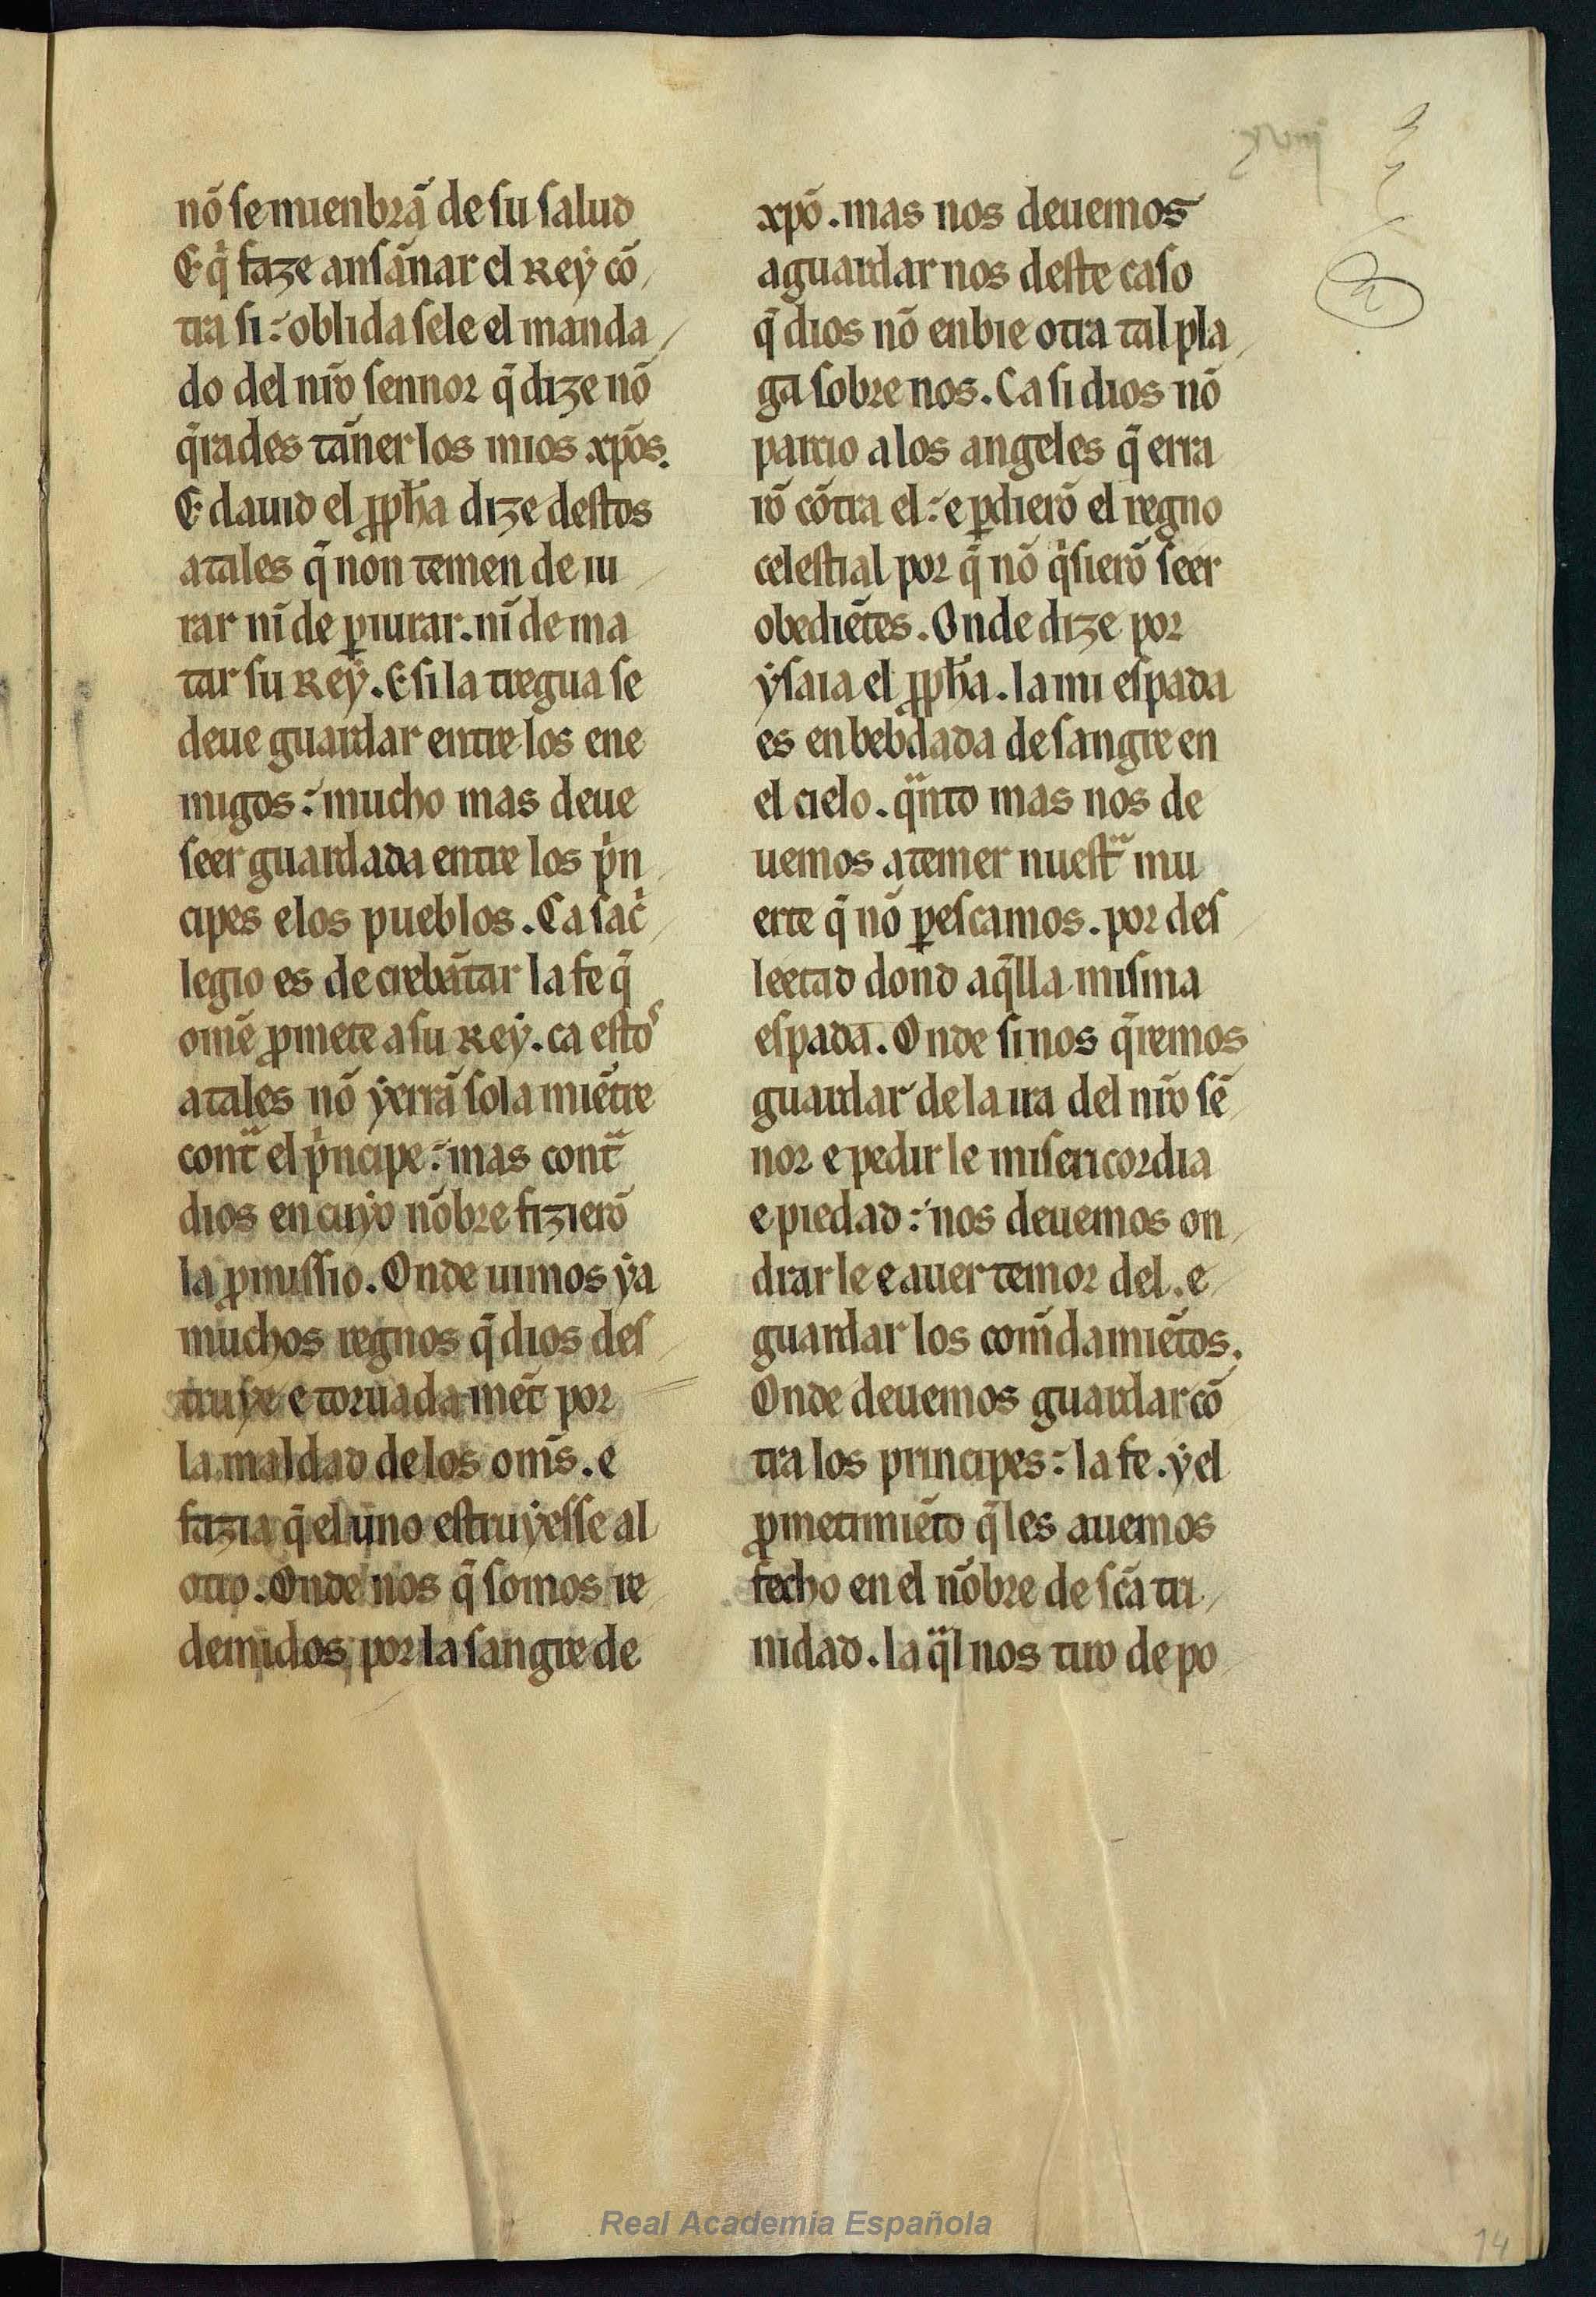 nõ se muenbrã de su salud
E q̃ faze ansãnar el Rey cõ
tra si: oblida sele el manda
do del nr̃o sennor q̃ dize nõ
q̃rades tãner los mios xp̃os.
E dauid el ꝓph̃a dize destos
atales q̃ non temen de iu
rar nĩ de ꝑiurar. nĩ de ma
tar su Rey. E si la tregua se
deue guardar entre los ene
migos: mucho mas deue
seer guardada entre los p̃n
cipes e los pueblos. Ca sac̃
legio es de crebãtar la fe q̃
omẽ ꝓmete a su Rey. ca estoˢ
atales nõ yerrã sola miẽtre
cont̃ el p̃ncipe: mas cont̃
dios en cuyo nõbre fizierõ
la ꝓmissio. Onde uimos ya
muchos regnos q̃ dios des
truye e toruada mẽt por
la maldad de los om̃s. e
fazia q̃ el uno estruyesse al
otro. Onde nos q̃ somos re
demidos por la sangre de
xp̃o. mas nos deuemos
aguardar nos deste caso
q̃ dios nõ enbie otra tal pla
ga sobre nos. Ca si dios nõ
parcio a los angeles q̃ erra
rõ cõtra el: e ꝑdierõ el regno
celestial por q̃ nõ q̃sierõ seer
obediẽtes. Onde dize por
ysaia el ꝓph̃a. la mi espada
es enbebdada de sangre en
el cielo. q̃nto mas nos de
uemos a temer nuest̃ mu
erte q̃ nõ ꝑescamos. por des
leetad dond aq̃lla misma
espada. Onde si nos q̃remos
guardar de la ira del nr̃o sẽ
nor e pedir le misericordia
e piedad: nos deuemos on
drar le e auer temor del. e
guardar los com̃damiẽtos.
Onde deuemos guardar cõ
tra los principes: la fe. y el
ꝓmetimiẽto q̃ les auemos
fecho en el nõbre de sc̃a tri
nidad. la q̃l nos tiro de po
14
Real Academia Española